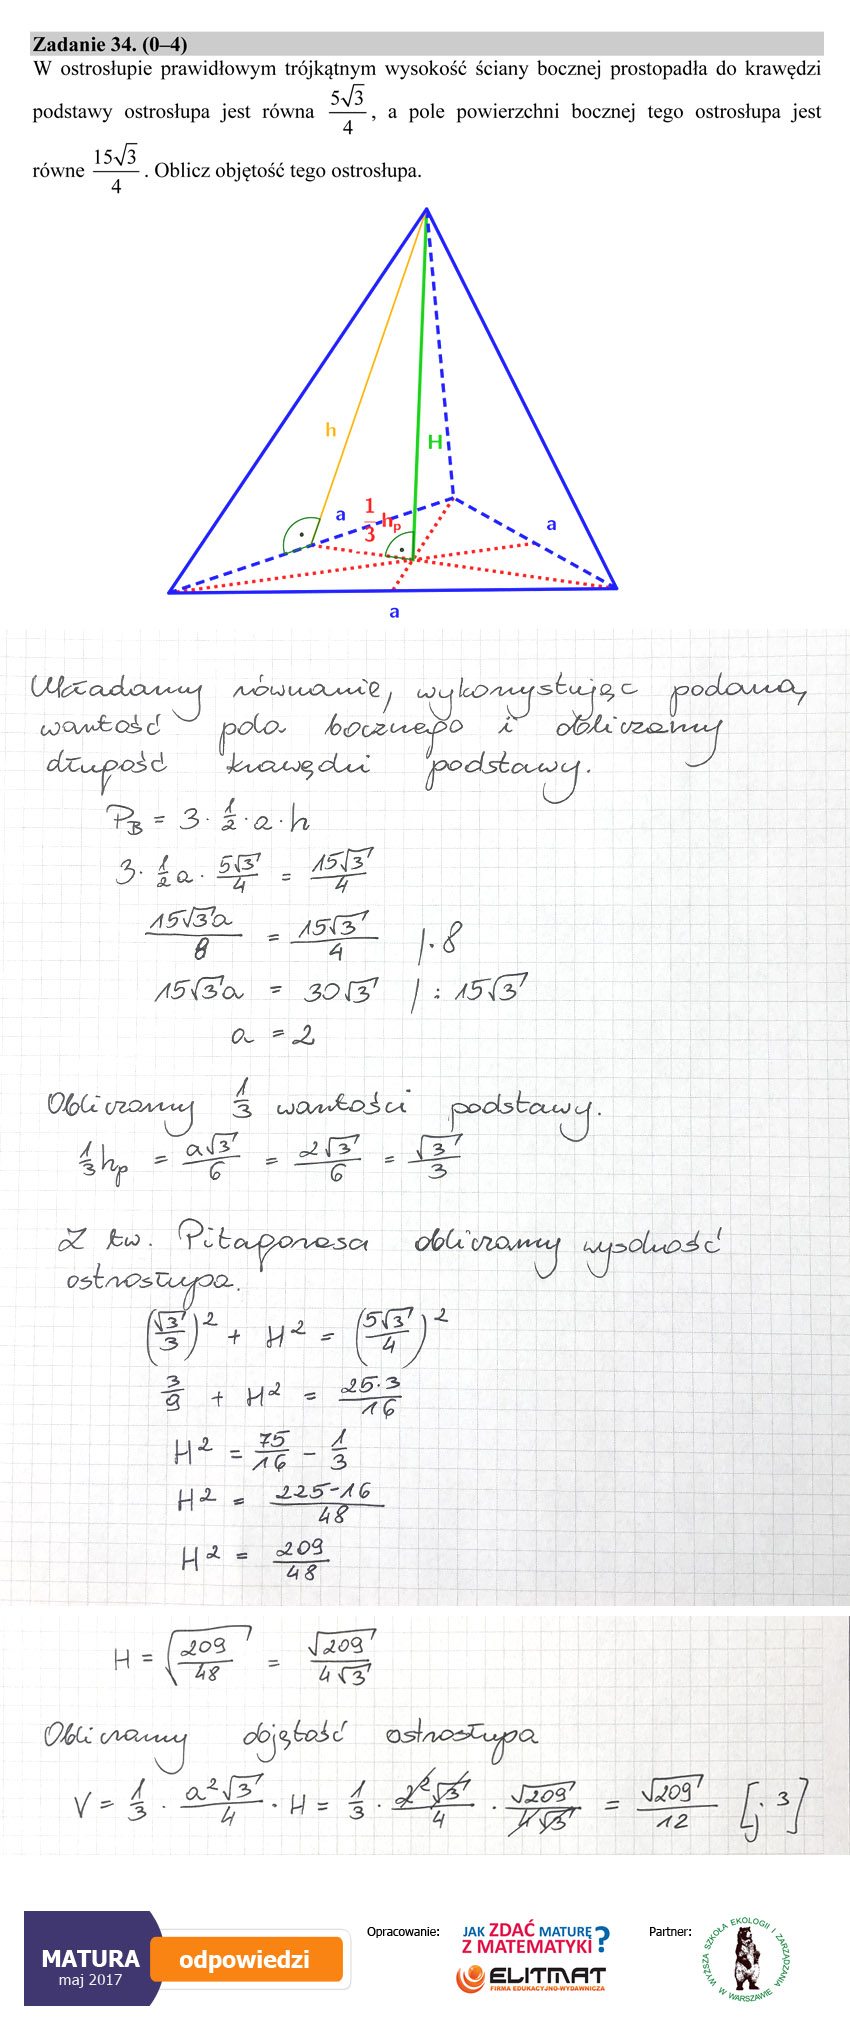 Zadanie 34. (0–4)
W ostrosłupie prawidłowym trójkątnym wysokość ściany bocznej prostopadła do krawędzi
podstawy ostrosłupa jest równa 5√3/4, a pole powierzchni bocznej tego ostrosłupa jest
równe 15√3/4. Oblicz objętość tego ostrosłupa.
h
H
a
1/3 hp
a
a
Układamy równanie, wykorzystując podaną
wartość pola bocznego i obliczamy
długość krawędzi podstawy.
P_B = 3 · 1/2 · a · h
3 · 1/2 a · 5√3/4 = 15√3/4
15√3a/8 = 15√3/4 |· 8
15√3a = 30√3 | : 15√3
a = 2
Obliczamy 1/3 wartości podstawy.
1/3 hp = a√3/6 = 2√3/6 = √3/3
Z tw. Pitagorasa obliczamy wysokość
ostrosłupa.
(√3/3)² + H² = (5√3/4)²
3/9 + H² = 25·3/16
H² = 75/16 - 1/3
H² = 225-16/48
H² = 209/48
H = √(209/48) = √209/4√3
Obliczamy objętość ostrosłupa
V = 1/3 · a²√3/4 · H = 1/3 · 2²√3/4 · √209/4√3 = √209/12 [j³]
MATURA
maj 2017
odpowiedzi
Opracowanie:
JAK ZDAĆ MATURĘ
Z MATEMATYKI?
ELITMAT
FIRMA EDUKACYJNO-WYDAWNICZA
Partner:
WYŻSZA SZKOŁA EKOLOGII I ZARZĄDZANIA
W WARSZAWIE